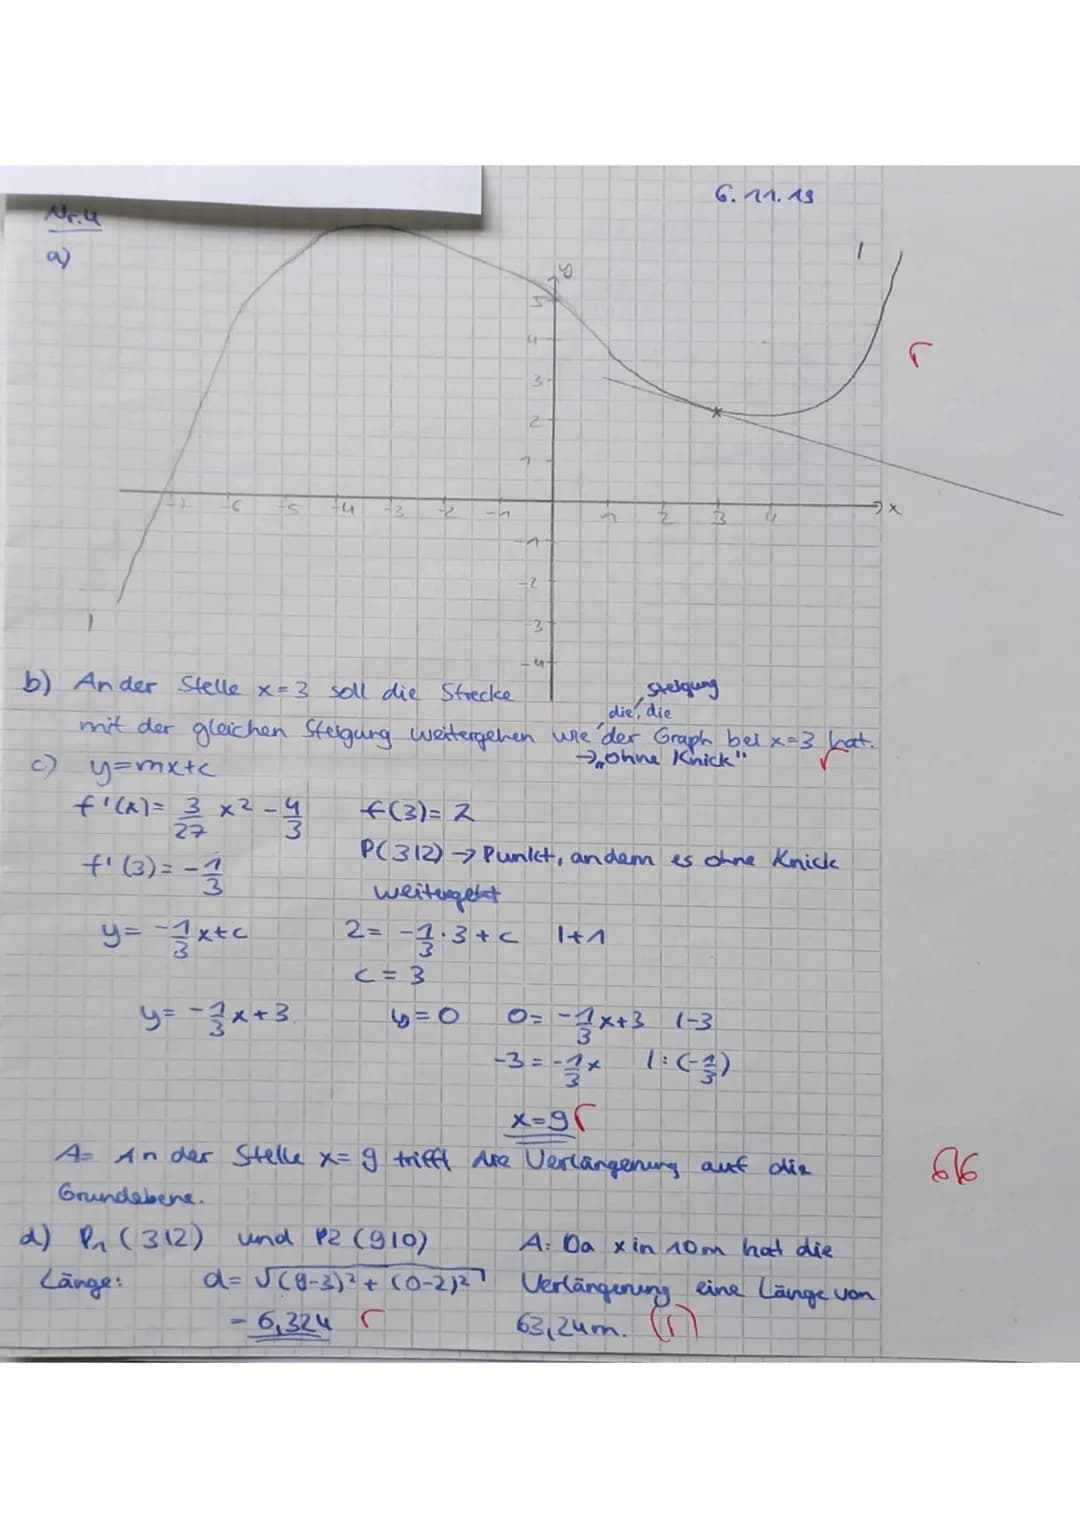 6.11.19
Nr.4
a)
y
5
4
3
2
1
-7 -6 -5 -4 -3 -2 -1 1 2 3 4 x
-1
-2
-3
-4
b) An der Stelle x=3 soll die Strecke
Steigung
die, die
mit der gleichen Steigung weitergehen wie der Graph bei x=3 hat.
→ „ohne Knick"
c) y=mx+c
f'(x)= 3/27 x² - 4/3 f(3)= 2
f'(3)= -1/3 P(3|2) → Punkt, an dem es ohne Knick
weitergeht
y= -1/3x+c 2= -1/3·3+c |+1
c = 3
y= -1/3x+3 y=0 0= -1/3x+3 |-3
-3= -1/3x |:(-1/3)
x=9
A: An der Stelle x=9 trifft die Verlängerung auf die
6/6
Grundebene.
d) P1 (3|2) und P2 (9|0) A: Da x in 10m hat die
Länge: d= √(9-3)²+(0-2)² Verlängerung eine Länge von
= 6,324 63,24m.